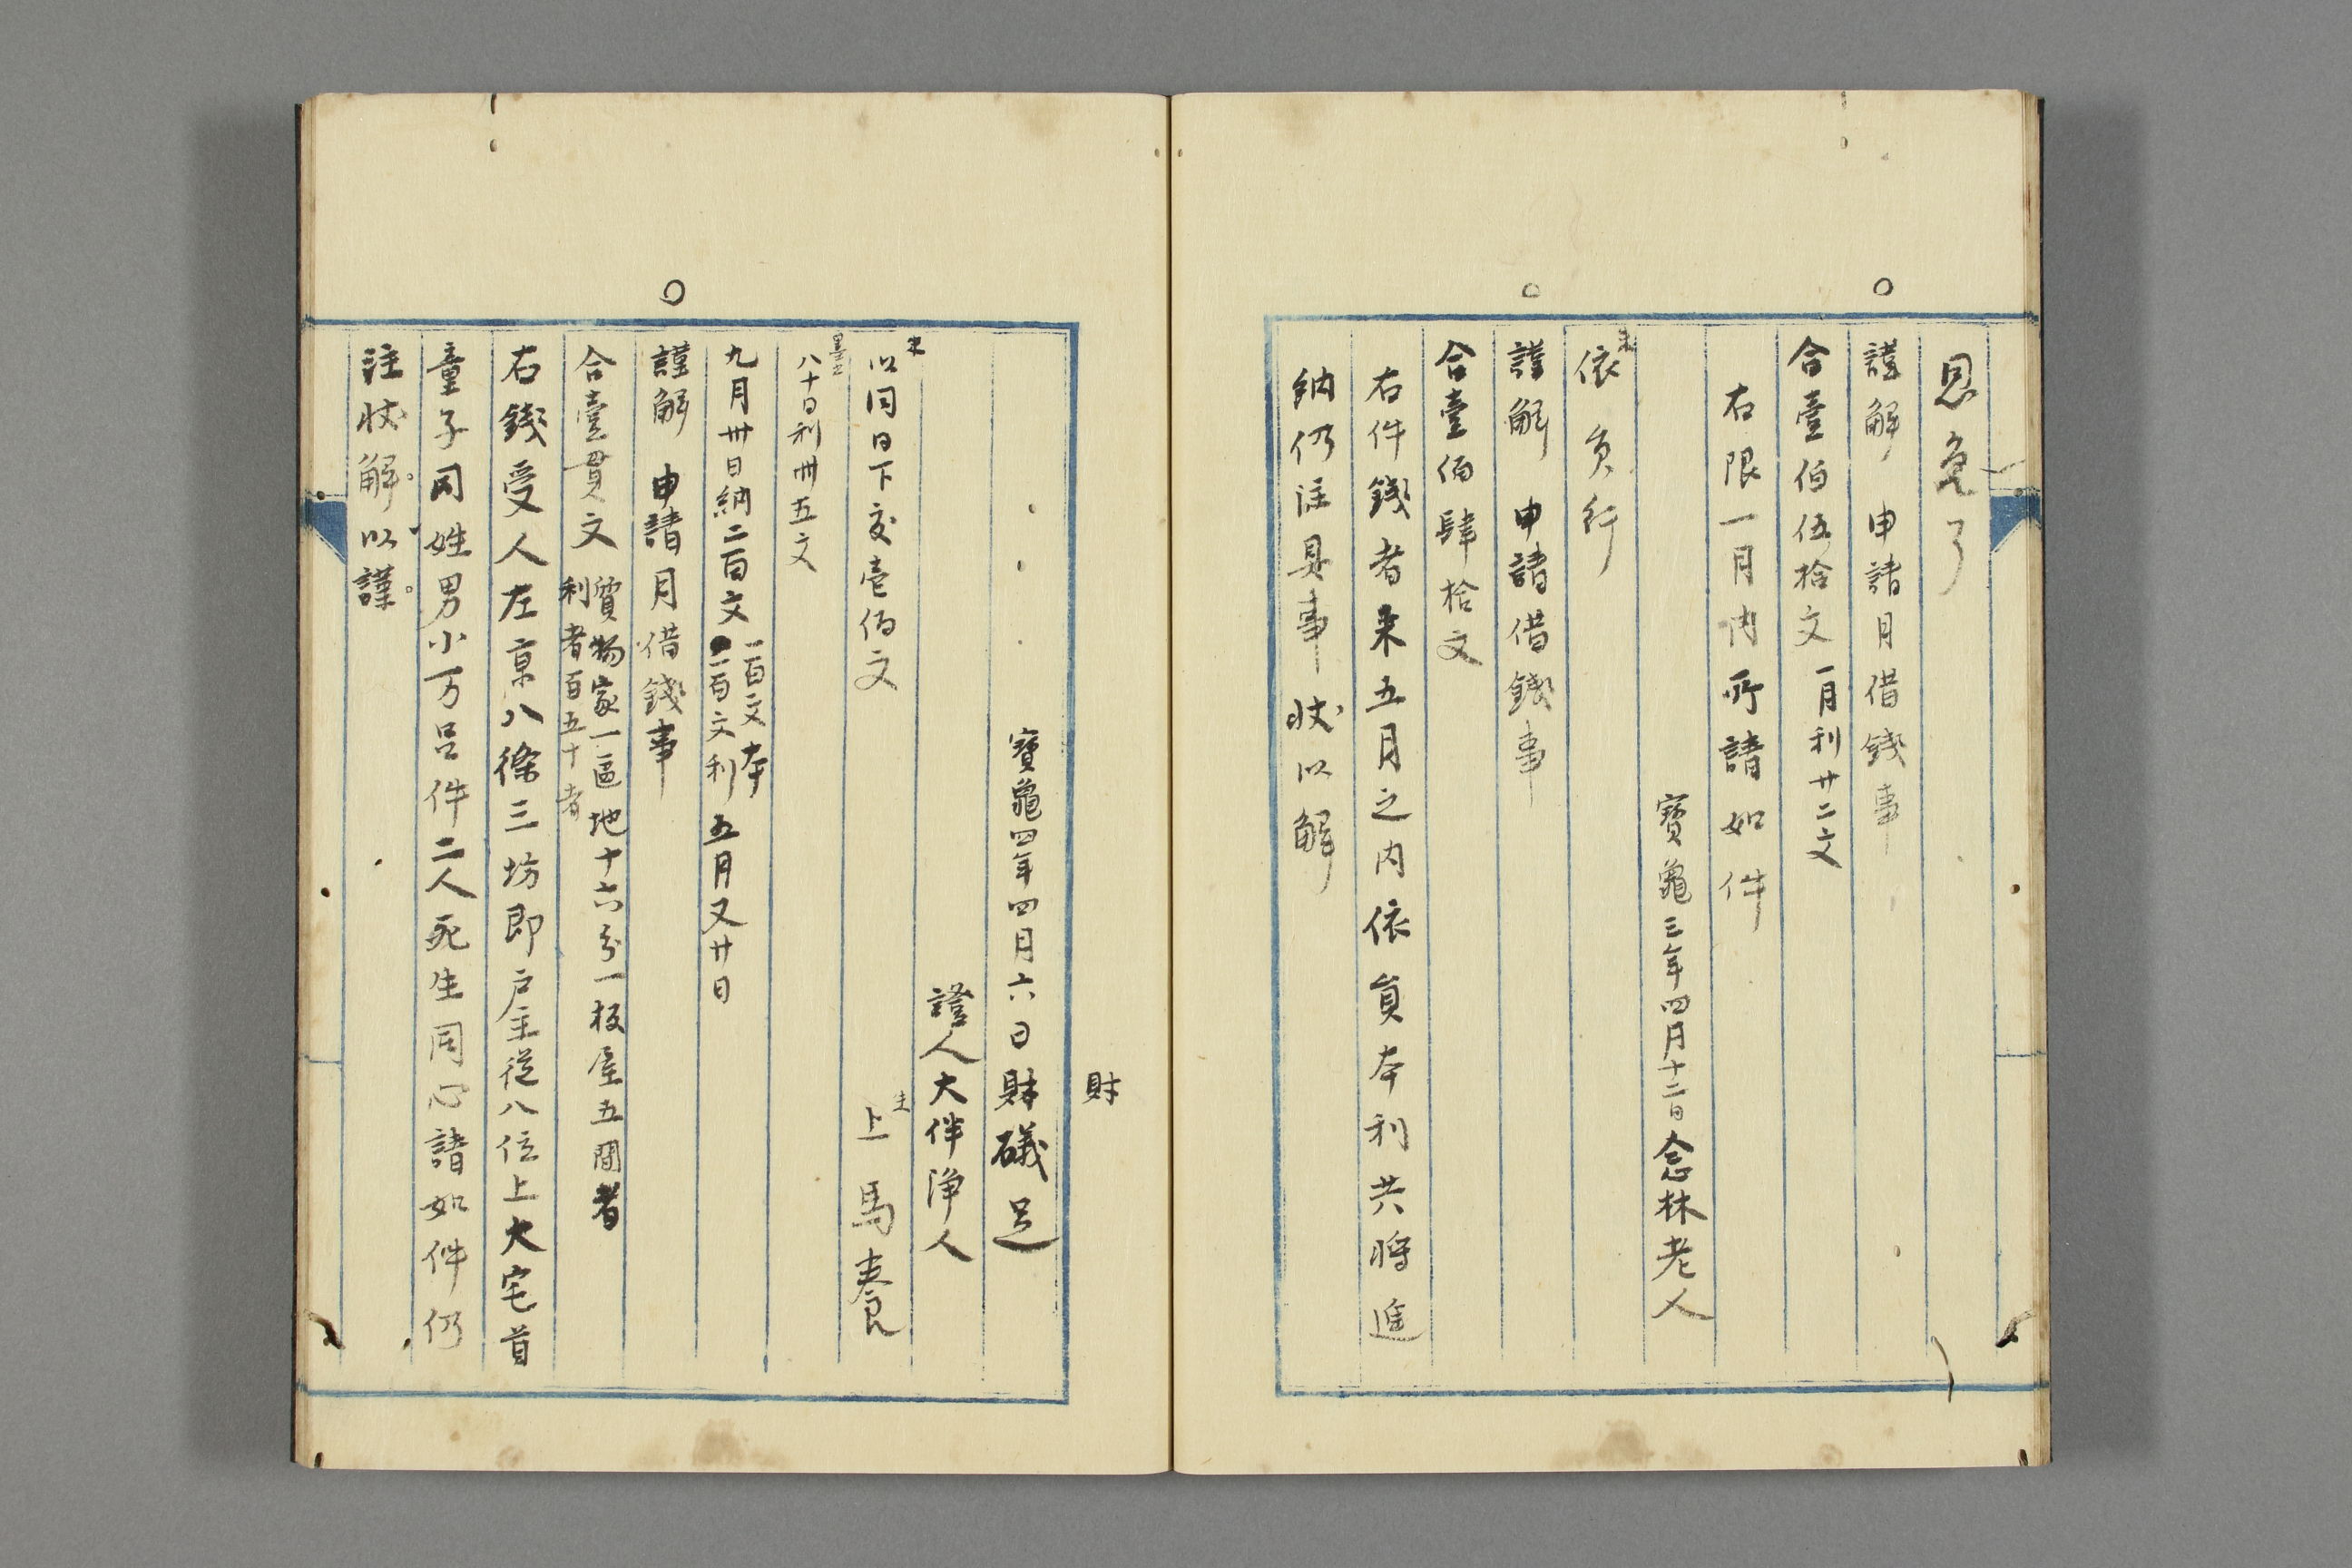 恩免了
○
謹解 申請月借錢事
合壹佰伍拾文 一月利廿二文
右限一月内所請如件
寶龜三年四月十二日念林老人
朱
依員行
○
謹解 申請借錢事
合壹佰肆拾文
右件錢者来五月之内依員本利共將進
納仍注具事状以解
財
寶龜四年四月六日財礒足
證人大伴淨人
朱
以同日下充壱佰文
主
上馬養
墨
八十日利卌五文
九月卅日納二百文 一百文本
一百文利
五月又廿日
○
謹解 申請月借錢事
合壹貫文 質物家一區地十六分一板屋五間者
利者百五十者
右錢受人左京八條三坊即戸主從八位上大宅首
童子同姓男小万呂件二人死生同心請如件仍
注状解。以謹。